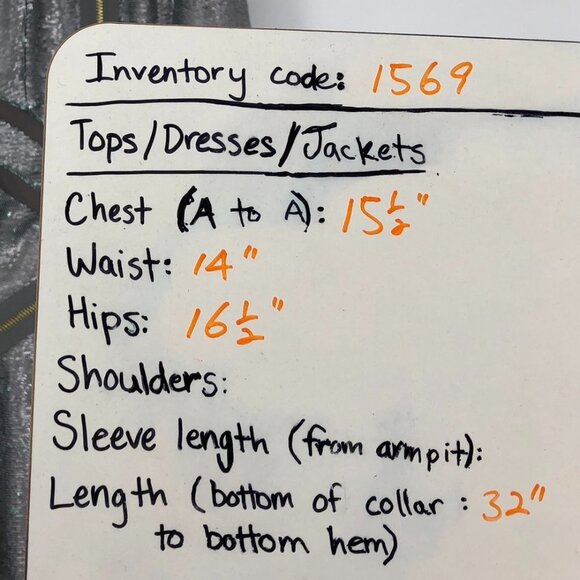 Inventory code: 1569
Tops/Dresses/Jackets
Chest (A to A): 15 1/2"
Waist: 14"
Hips: 16 1/2"
Shoulders:
Sleeve length (from armpit):
Length (bottom of collar : 32"
to bottom hem)